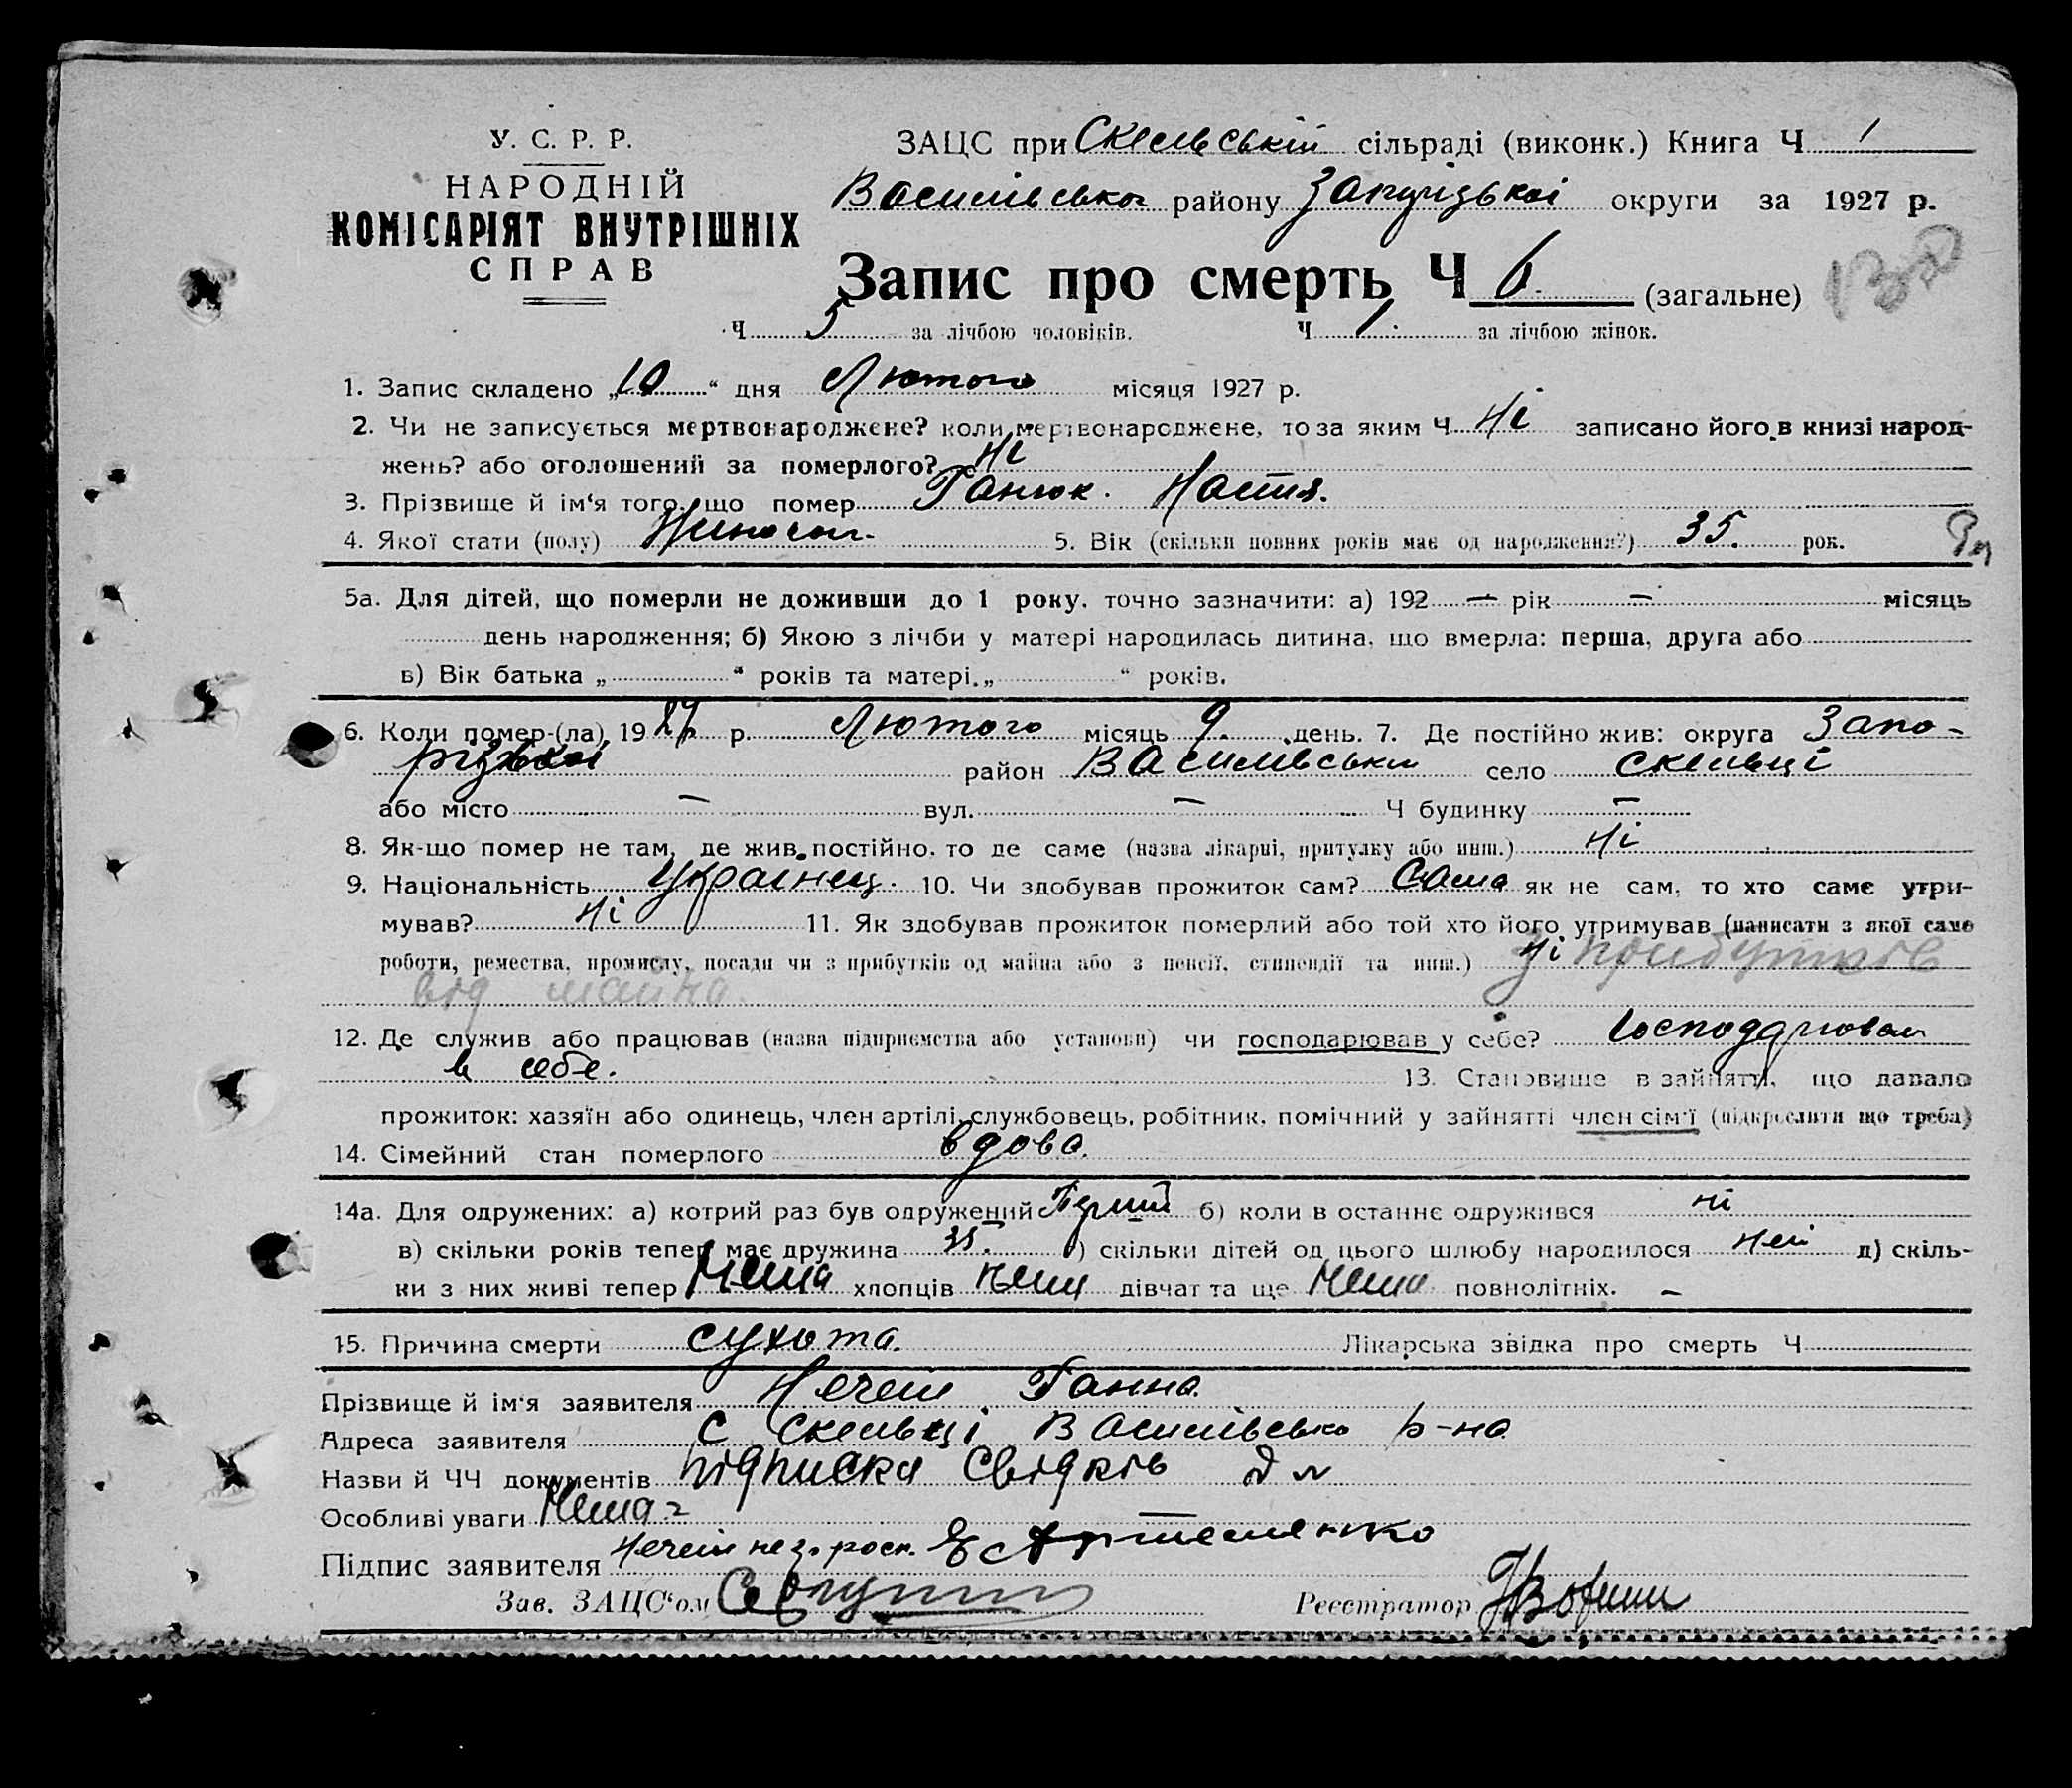 У. С. Р. Р.
НАРОДНІЙ
КОМІСАРІЯТ ВНУТРІШНІХ
СПРАВ
ЗАЦС при Скельській сільраді (виконк.) Книга Ч 1
Василівсько району Запорізької округи за 1927 р.
Запис про смерть Ч 6. (загальне)
Ч 5 за лічбою чоловіків. Ч 1. за лічбою жінок.
1. Запис складено „10“ дня Лютого місяця 1927 р.
2. Чи не записується мертвонароджене? коли мертвонароджене, то за яким Ч Ні записано його в книзі народ-
жень? або оголошений за померлого? Ні
3. Прізвище й ім'я того, що помер Ганюк. Настя.
4. Якої стати (полу) 5. Вік (скільки повних років має од народження?) 35. рок.
5а. Для дітей, що померли не доживши до 1 року, точно зазначити: а) 192 — рік — місяць
день народження; б) Якою з лічби у матері народилась дитина, що вмерла: перша, друга або
в) Вік батька „ “ років та матері „ “ років.
6. Коли помер-(ла) 1927 р. Лютого місяць 9. день. 7. Де постійно жив: округа Запо-
різької район Василівськи село Скельці
або місто — вул. — Ч будинку —
8. Як-що помер не там, де жив постійно, то де саме (назва лікарні, притулку або инш.) Ні
9. Національність Українец. 10. Чи здобував прожиток сам? Сама як не сам, то хто саме утри-
мував? Ні 11. Як здобував прожиток померлий або той хто його утримував (написати з якої саме
роботи, ремества, промислу, посади чи з прибутків од майна або з пенсії, стипендії та инш.) Ні З прибутків
від майна.
12. Де служив або працював (назва підприємства або установи) чи господарював у себе? Господарював
в себе. 13. Становище в зайнятті, що давало
прожиток: хазяїн або одинець, член артілі, службовець, робітник, помічний у зайнятті член сім'ї (підкреслити що треба)
14. Сімейний стан померлого вдова.
14а. Для одружених: а) котрий раз був одружений Перший б) коли в останнє одружився ні
в) скільки років тепер має дружина 35. г) скільки дітей од цього шлюбу народилося д) скіль-
ки з них живі тепер Нема хлопців дівчат та ще Нема повнолітніх. —
15. Причина смерти сухота. Лікарська звідка про смерть Ч
Прізвище й ім'я заявителя Нечет Ганна
Адреса заявителя С Скельці Василівсько р-на
Назви й ЧЧ документів підписка Свідків
Особливі уваги Нема
Підпис заявителя Нечет Артеменко
Зав. ЗАЦС'ом
Реєстратор